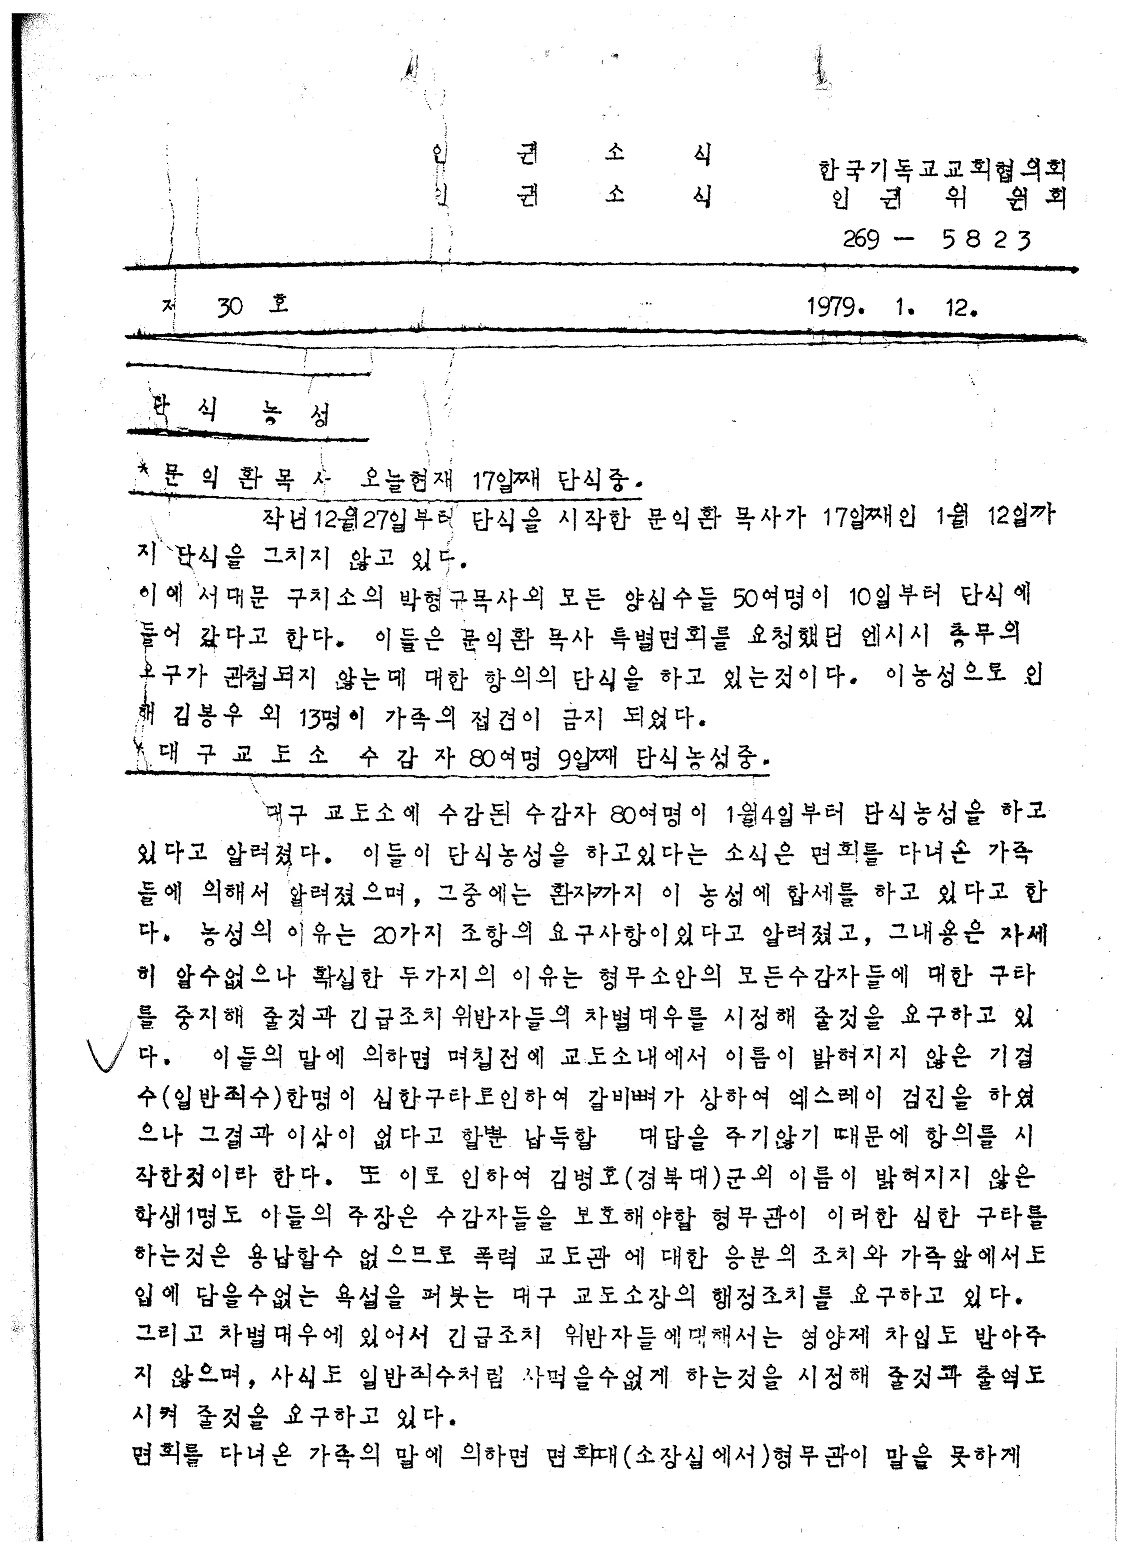 인 권 소 식
인 권 소 식
한국기독교교회협의회
인 권 위 원 회
269 - 5823
제 30 호 1979. 1. 12.
단 식 농 성
* 문 익 환 목 사 오늘현재 17일째 단식중.
작년12월27일부터 단식을 시작한 문익환 목사가 17일째인 1월 12일까
지 단식을 그치지 않고 있다.
이에 서대문 구치소의 박형규목사외 모든 양심수들 50여명이 10일부터 단식에
들어 갔다고 한다. 이들은 문익환 목사 특별면회를 요청했던 엔시시 총무의
요구가 관철되지 않는데 대한 항의의 단식을 하고 있는것이다. 이농성으로 인
해 김봉우 외 13명이 가족의 접견이 금지 되었다.
* 대 구 교 도 소 수 감 자 80여명 9일째 단식농성중.
대구 교도소에 수감된 수감자 80여명이 1월4일부터 단식농성을 하고
있다고 알려졌다. 이들이 단식농성을 하고있다는 소식은 면회를 다녀온 가족
들에 의해서 알려졌으며, 그중에는 환자까지 이 농성에 합세를 하고 있다고 한
다. 농성의 이유는 20가지 조항의 요구사항이있다고 알려졌고, 그내용은 자세
히 알수없으나 확실한 두가지의 이유는 형무소안의 모든수감자들에 대한 구타
를 중지해 줄것과 긴급조치위반자들의 차별대우를 시정해 줄것을 요구하고 있
다. 이들의 말에 의하면 며칠전에 교도소내에서 이름이 밝혀지지 않은 기결
수(일반죄수)한명이 심한구타로인하여 갈비뼈가 상하여 엑스레이 검진을 하였
으나 그결과 이상이 없다고 할뿐 납득할 대답을 주기않기 때문에 항의를 시
작한것이라 한다. 또 이로 인하여 김병호(경북대)군외 이름이 밝혀지지 않은
학생1명도 아들의 주장은 수감자들을 보호해야할 형무관이 이러한 심한 구타를
하는것은 용납할수 없으므로 폭력 교도관 에 대한 응분의 조치와 가족앞에서도
입에 담을수없는 욕설을 퍼붓는 대구 교도소장의 행정조치를 요구하고 있다.
그리고 차별대우에 있어서 긴급조치 위반자들에대해서는 영양제 차입도 받아주
지 않으며, 사식도 일반죄수처럼 사먹을수없게 하는것을 시정해 줄것과 출역도
시켜 줄것을 요구하고 있다.
면회를 다녀온 가족의 말에 의하면 면회때(소장실에서)형무관이 말을 못하게